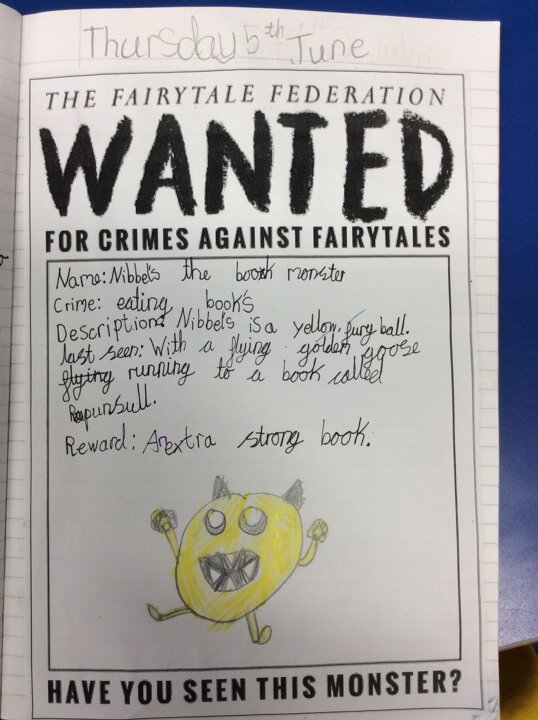 Thursday 5th June
THE FAIRYTALE FEDERATION
WANTED
FOR CRIMES AGAINST FAIRYTALES
Name: Nibbel's the book monster
Crime: eating books
Description: Nibbel's is a yellow, fury ball.
last seen: With a flying golden goose
flying running to a book called
Rapunsull.
Reward: An extra strong book.
HAVE YOU SEEN THIS MONSTER?